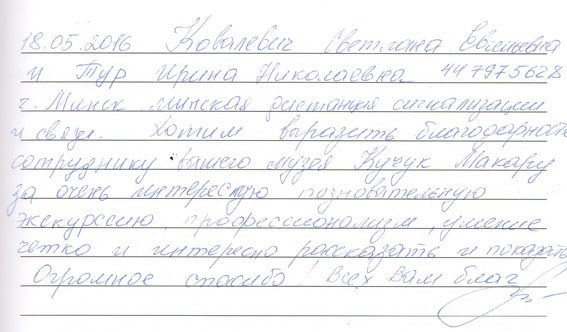 18.05.2016 Ковалевич Светлана Евгеньевна
и Тур Ирина Николаевна 447975628
г. Минск минская дистанция сигнализации
и связи. Хотим выразить благодарность
сотруднику вашего музея Кучук Макару
за очень интересную позновательную
экскурссию, профессионализм, умение
четко и интересно рассказать и показать
Огромное спасибо. Всех Вам благ